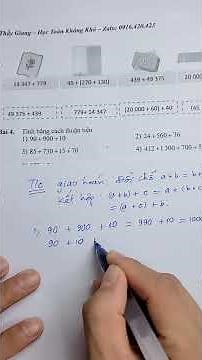 Thầy Giang – Học Toán Không Khó – Zalo: 0916.420.423
14 347 + 779
45 + (270 + 130)
439 + 49 375
20 000
49 375 + 439
779 + 14 347
(20 000 + 60) + 40
Bài 4. Tính bằng cách thuận tiện
1) 90 + 900 + 10
2) 24 + 560 + 76
3) 85 + 730 + 15 + 70
4) 412 + 1 300 + 700 + 5
T/c giao hoán: Đổi chỗ a + b = b +
Kết hợp: (a + b) + c = a + (b + c
= (a + c) + b.
1) 90 + 900 + 10 = 990 + 10 = 1000
90 + 10